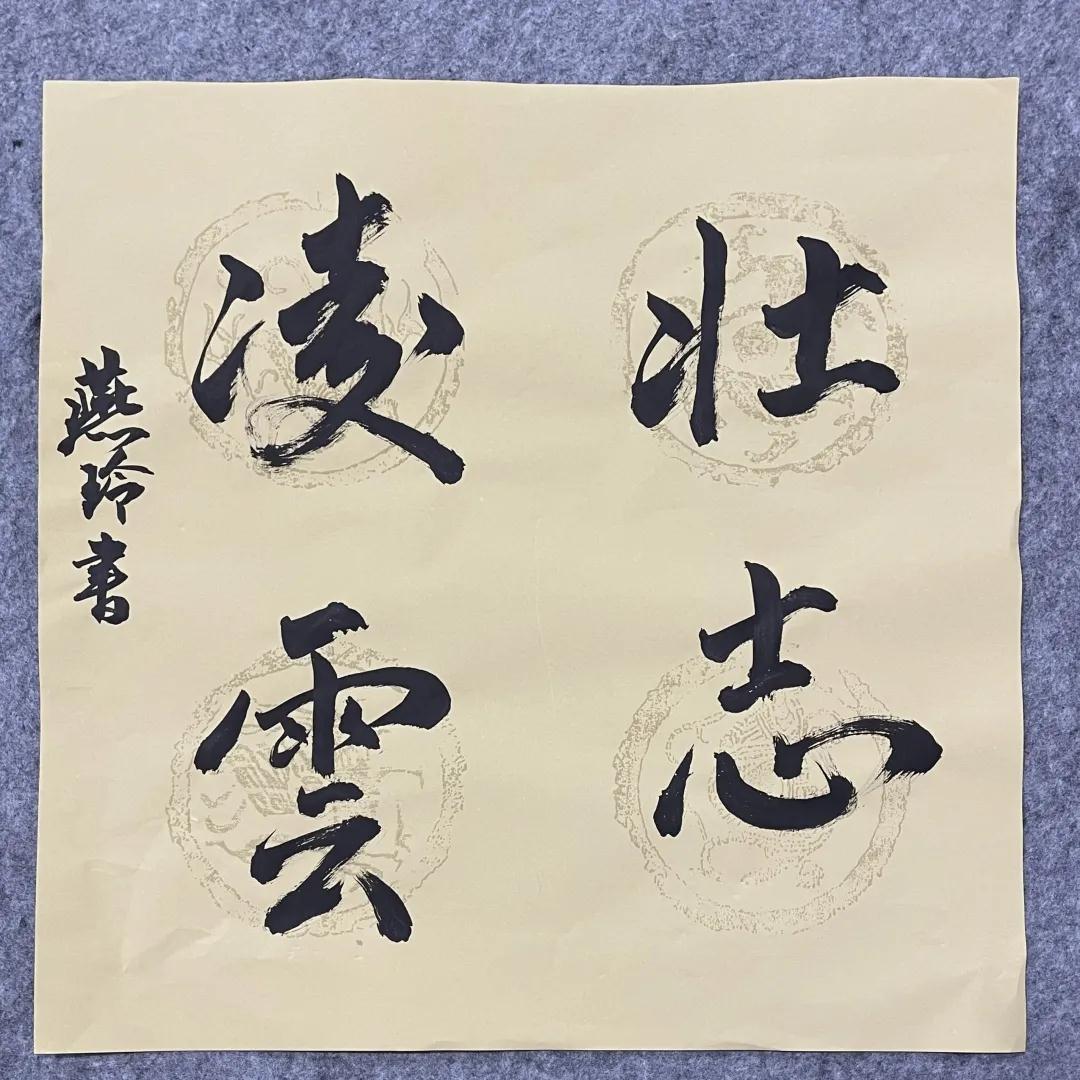 壮志
凌雲
燕玲書